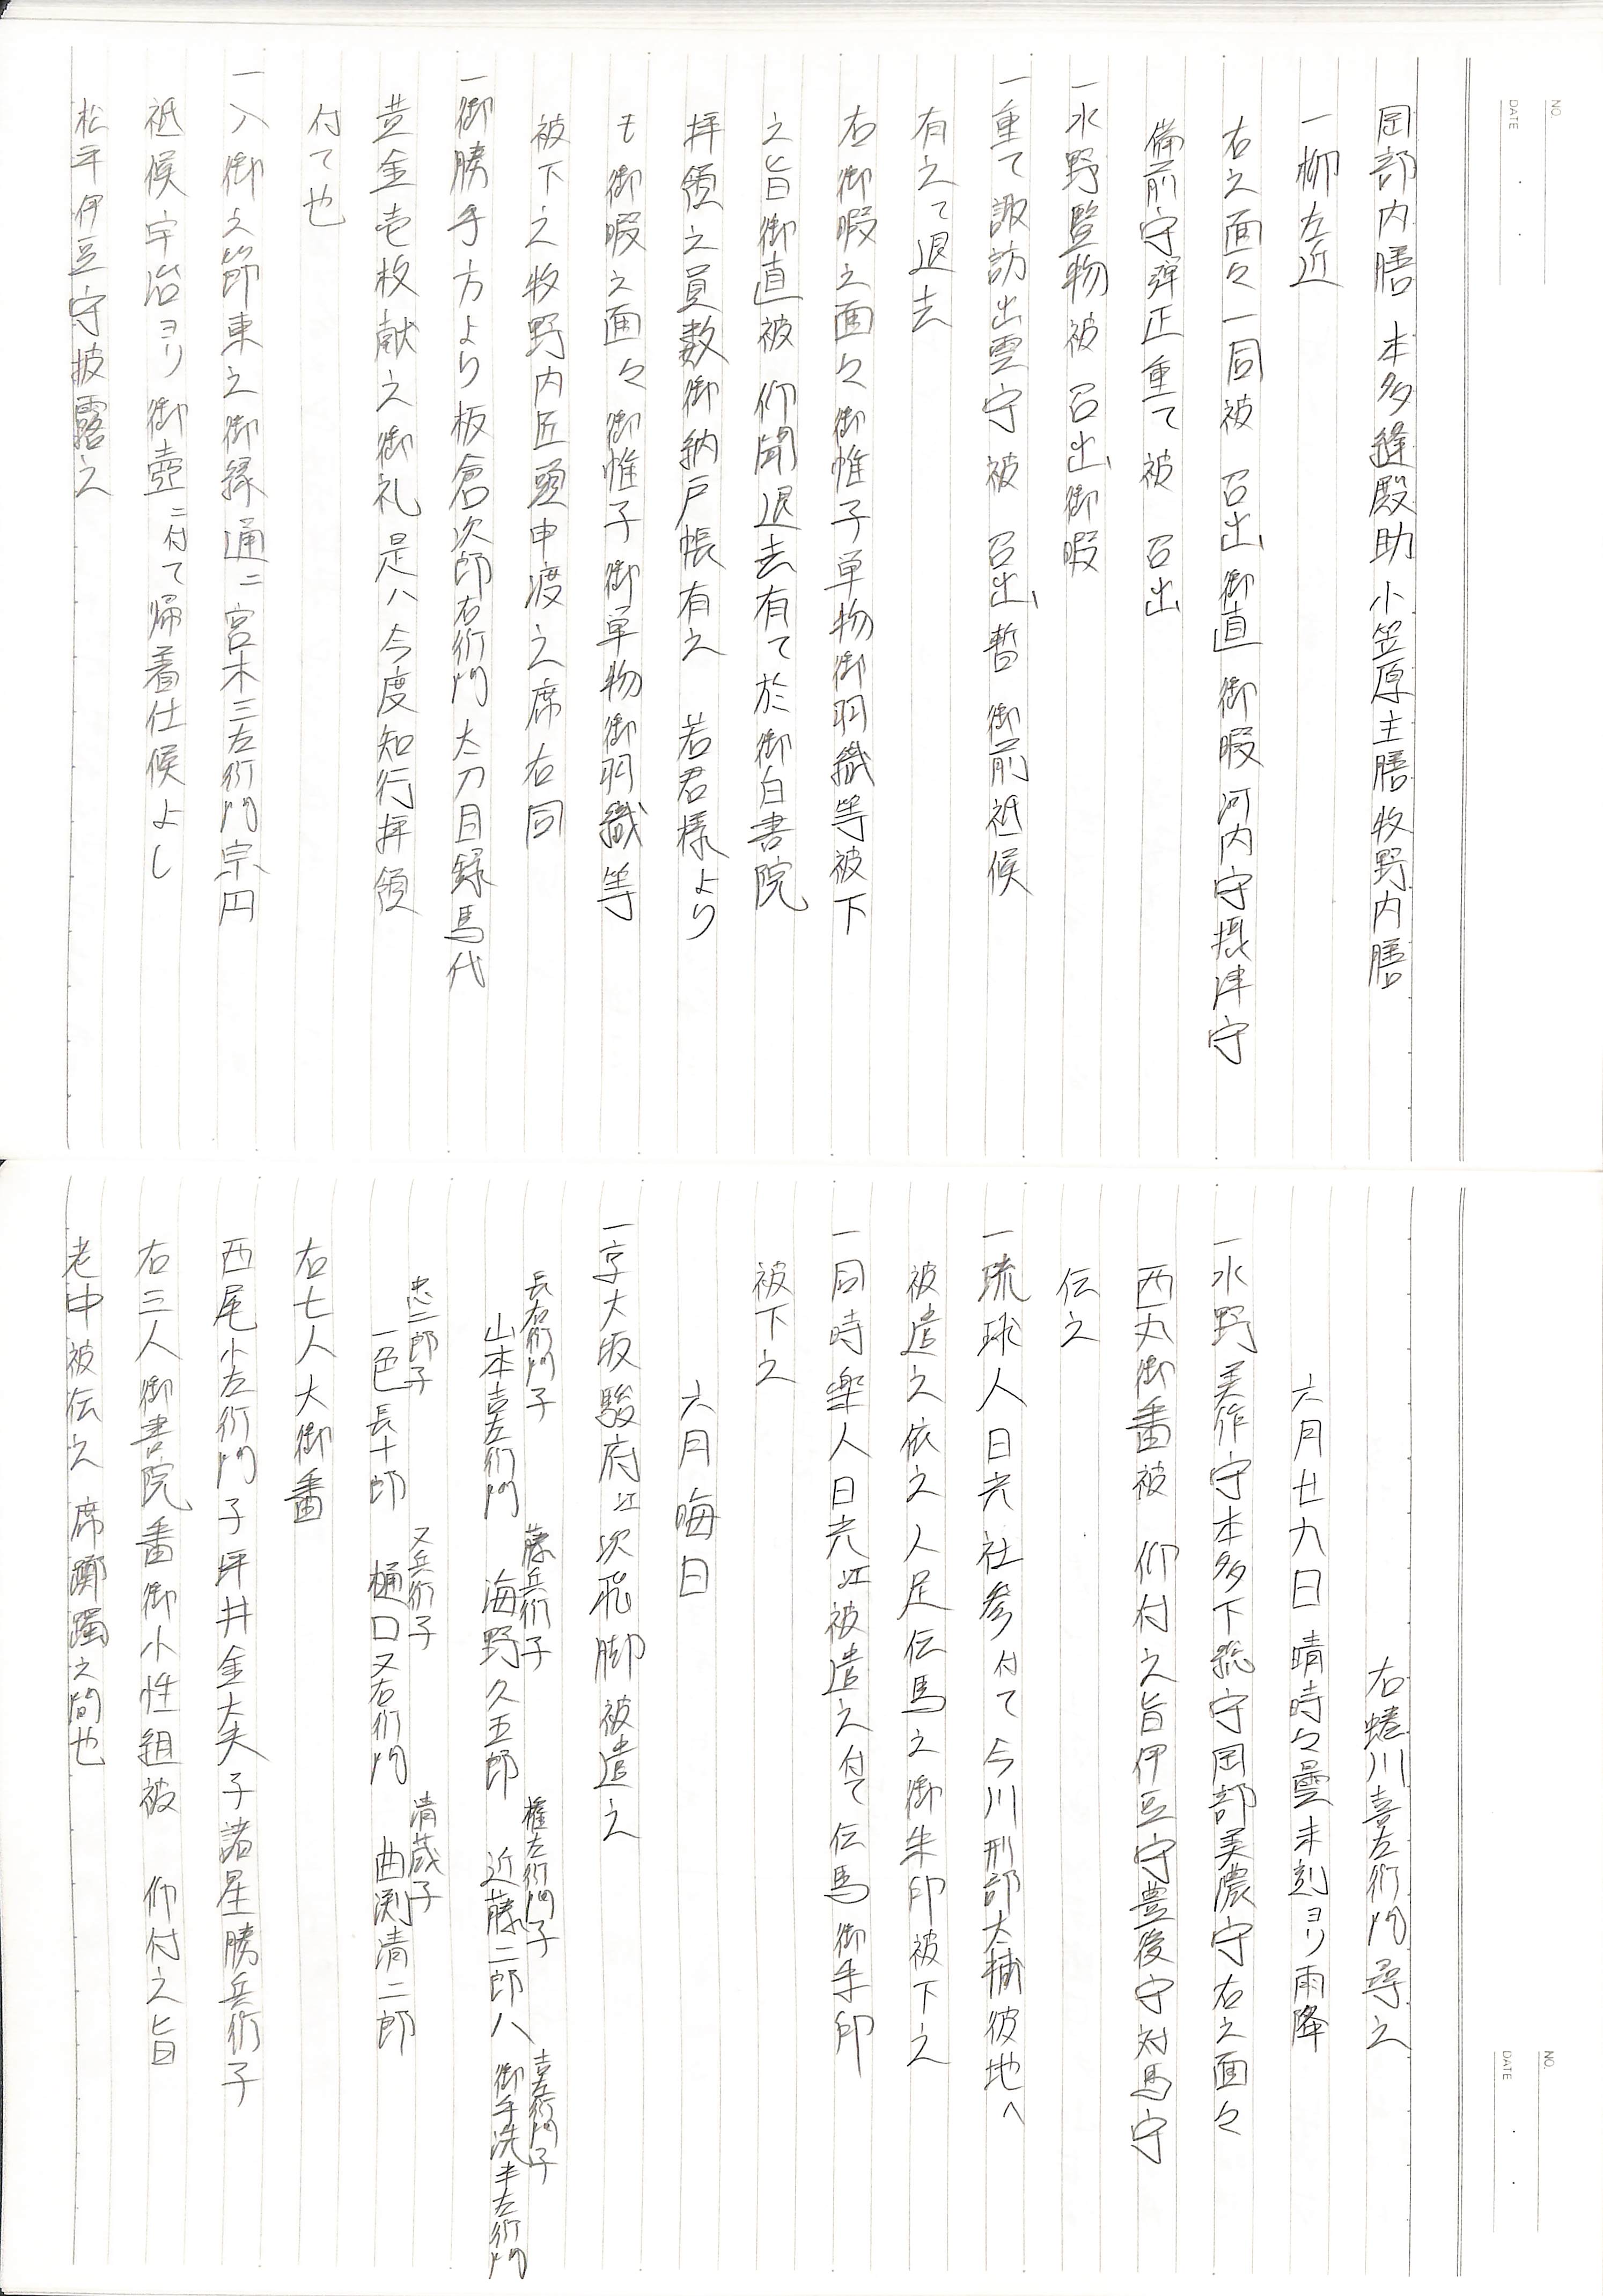 NO.
DATE
岡部内膳 本多縫殿助 小笠原主膳 牧野内膳
一柳左近
右之面々一同被 召出 御直 御暇 河内守摂津守
備前守弾正重て被 召出
一水野監物被 召出御暇
一重て諏訪出雲守被 召出、暫 御前祗候
有之て退去
右御暇之面々御帷子単物御羽織等被下
之旨御直被 仰聞退去有て於御白書院
拝領之員数御納戸帳有之 若君様より
も御暇之面々御帷子御単物御羽織等
被下之牧野内匠頭申渡之席右同
一御勝手方より板倉次郎右衛門太刀目録馬代
黄金壱枚献之御礼是ハ今度知行拝領
付て也
一入御之節東之御縁通ニ宮木三左衛門宗円
祗候宇治ヨリ御壺ニ付て帰着仕候よし
松平伊豆守披露之
NO.
DATE
右蜷川喜左衛門尋之
六月廿九日 晴時々曇未刻ヨリ雨降
一水野美作守本多下総守岡部美濃守右之面々
西丸御番被 仰付之旨伊豆守豊後守対馬守
伝之
一琉球人日光社参付て今川刑部大輔彼地へ
被遣之依之人足伝馬之御朱印被下之
一同時楽人日光江被遣之付て伝馬御手印
被下之
六月晦日
一京大坂駿府江次飛脚被遣之
長右衛門子 藤兵衛子 権左衛門子 喜左衛門子
山本喜左衛門 海野久五郎 近藤二郎八 御手洗半左衛門
忠二郎子 又兵衛子 清蔵子
一色長十郎 樋口又右衛門 曲渕清二郎
右七人大御番
西尾小左衛門子 坪井金大夫子 諸星勝兵衛子
右三人御書院番御小性組被 仰付之旨
老中被伝之 席躑躅之間也